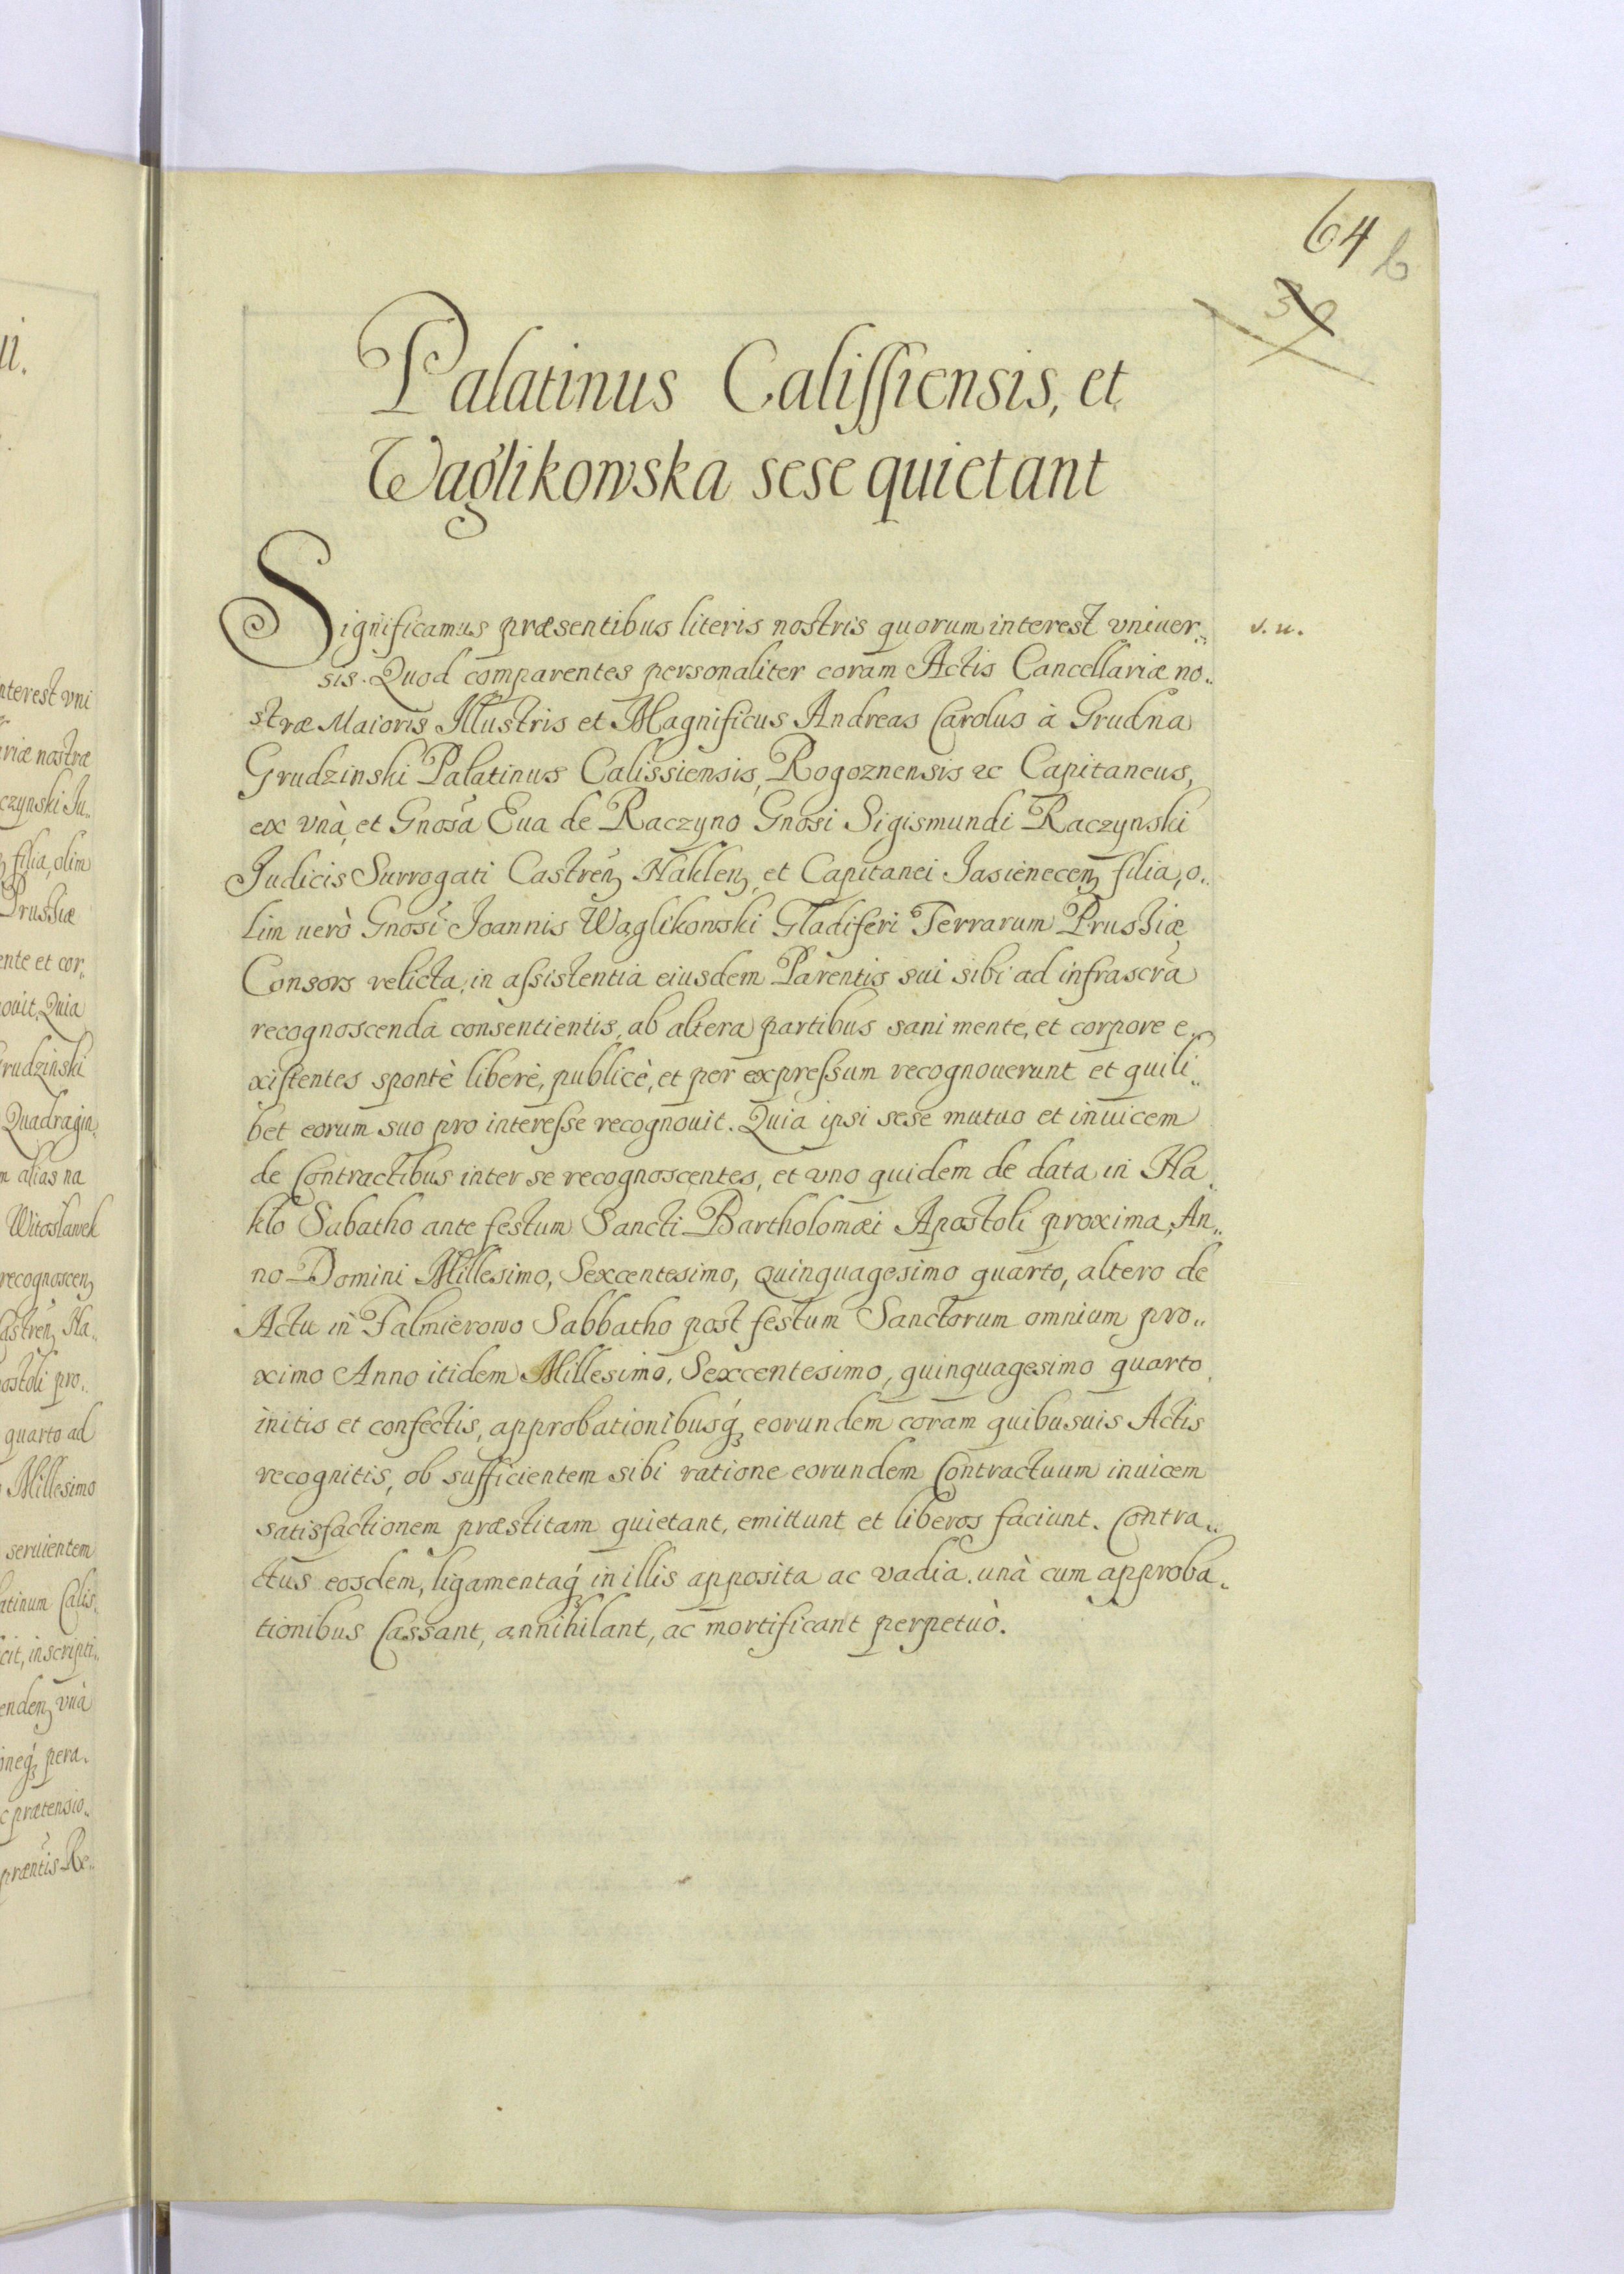 64
b
Palatinus Calissiensis, et
Waglikowska sese quietant
Significamus præsentibus literis nostris quorum interest vniuer„
v. u.
sis. Quod comparentes personaliter coram Actis Cancellariæ no„
stræ Maioris Illustris et Magnificus Andreas Carolus à Grudna
Grudzinski Palatinus Calissiensis, Rogoznensis &c Capitaneus,
ex vnà, et Gnosa Eua de Raczyno Gnosi Sigismundi Raczynski
Judicis Surrogati Castren Naklen, et Capitanei Jasienecen filia, o„
lim uerò Gnosi Joannis Waglikowski Gladiferi Terrarum Prussiæ
Consors relicta, in assistentia eiusdem Parentis sui sibi ad infrascra
recognoscenda consentientis, ab altera partibus sani mente, et corpore e„
xistentes spontè liberè, publicè, et per expressum recognouerunt et quili„
bet eorum suo pro interesse recognouit. Quia ipsi sese mutuo et inuicem
de Contractibus inter se recognoscentes, et vno quidem de data in Na„
klo Sabatho ante festum Sancti Bartholomæi Apostoli proxima, An„
no Domini Millesimo, Sexcentesimo, Quinquagesimo quarto, altero de
Actu in Falmierowo Sabbatho post festum Sanctorum omnium pro„
ximo Anno itidem Millesimo, Sexcentesimo, quinquagesimo quarto
initis et confectis, approbationibusq; eorundem coram quibusuis Actis
recognitis, ob sufficientem sibi ratione eorundem Contractuum inuicem
satisfactionem præstitam quietant, emittunt et liberos faciunt. Contra„
ctus eosdem, ligamentaq; in illis apposita ac vadia. unà cum approba„
tionibus Cassant, annihilant, ac mortificant perpetuò.